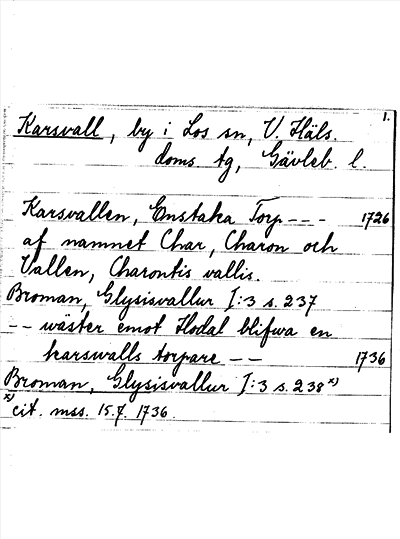 1.
Karsvall, by i Los sn, V. Häls.
doms. tg, Gävleb. l.
Karsvallen, Enstaka Torp --- 1726
af namnet Char, Charon och
Vallen, Charontis vallis.
Broman, Glysisvallur I:3 s. 237
-- wäster emot Hodal blifwa en
karswalls torpare -- 1736
Broman, Glysisvallur I:3 s. 238 x)
x) cit. mss. 15.7. 1736.